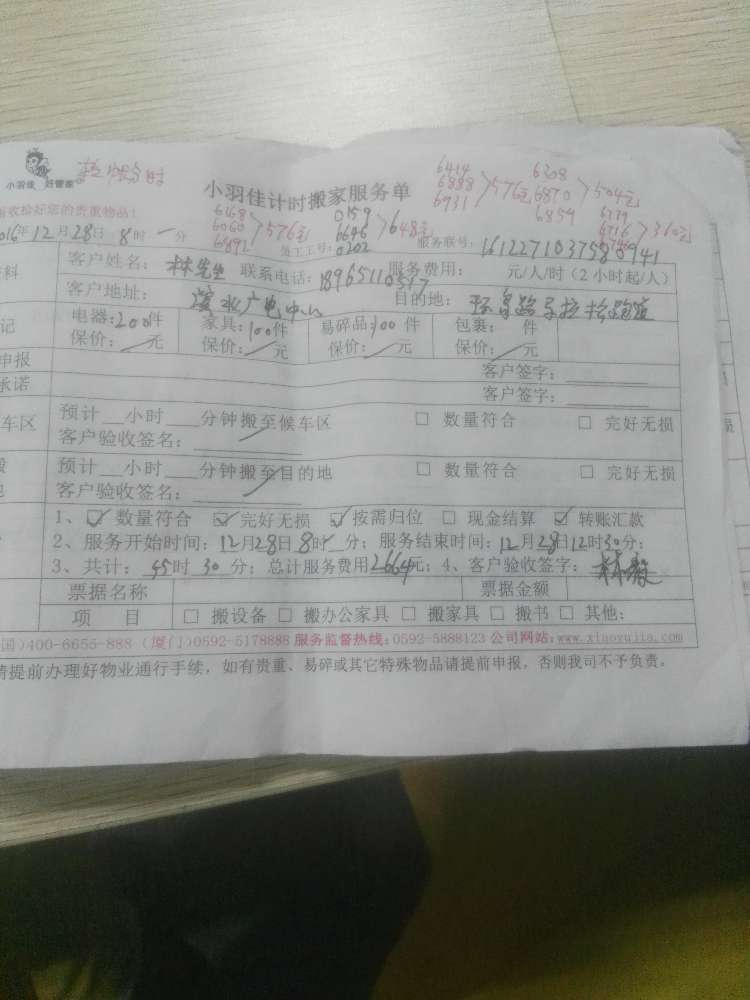 小羽佳 好管家
小羽佳计时搬家服务单
6414
6888
6931
576元
6308
6870
6859
504元
6168
6060
6892
576元
0159
6646
0202
648元
6779
6716
360元
收拾好您的贵重物品！
2016年12月28日 8时 一分 员工工号： 服务联号：1612271037580941
客户姓名：林先生 联系电话：18965110517 服务费用： 元/人/时（2小时起/人）
客户地址： 广电中心 目的地：
电器：200件 家具：100件 易碎品：100件 包裹： 件
保价： 元 保价： 元 保价： 元 保价： 元
申报 客户签字：
承诺 客户签字：
车区 预计__小时___分钟搬至候车区 □ 数量符合 □ 完好无损
客户验收签名：
预计__小时___分钟搬至目的地 □ 数量符合 □ 完好无损
客户验收签名：
1、☑ 数量符合 ☑ 完好无损 ☑ 按需归位 □ 现金结算 ☑ 转账汇款
2、服务开始时间：12月28日8时 分；服务结束时间：12月28日12时30分；
3、共计：45时 30 分；总计服务费用2664元；4、客户验收签字：
票据名称 票据金额
项 目 □ 搬设备 □ 搬办公家具 □ 搬家具 □ 搬书 □ 其他：
国)400-6655-888 (厦门)0592-5178885 服务监督热线：0592-5888123 公司网站：www.xiaoyujia.com
请提前办理好物业通行手续，如有贵重、易碎或其它特殊物品请提前申报，否则我司不予负责。